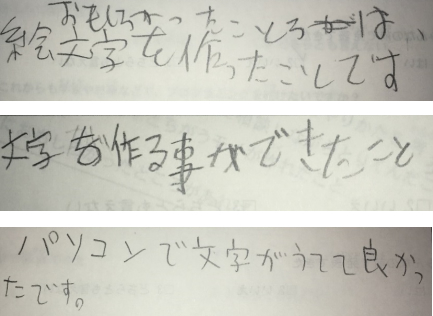 おもしろかったことろは、
絵文字を作ったことです
文字を作る事ができたこと
パソコンで文字がうてて良かっ
たです。